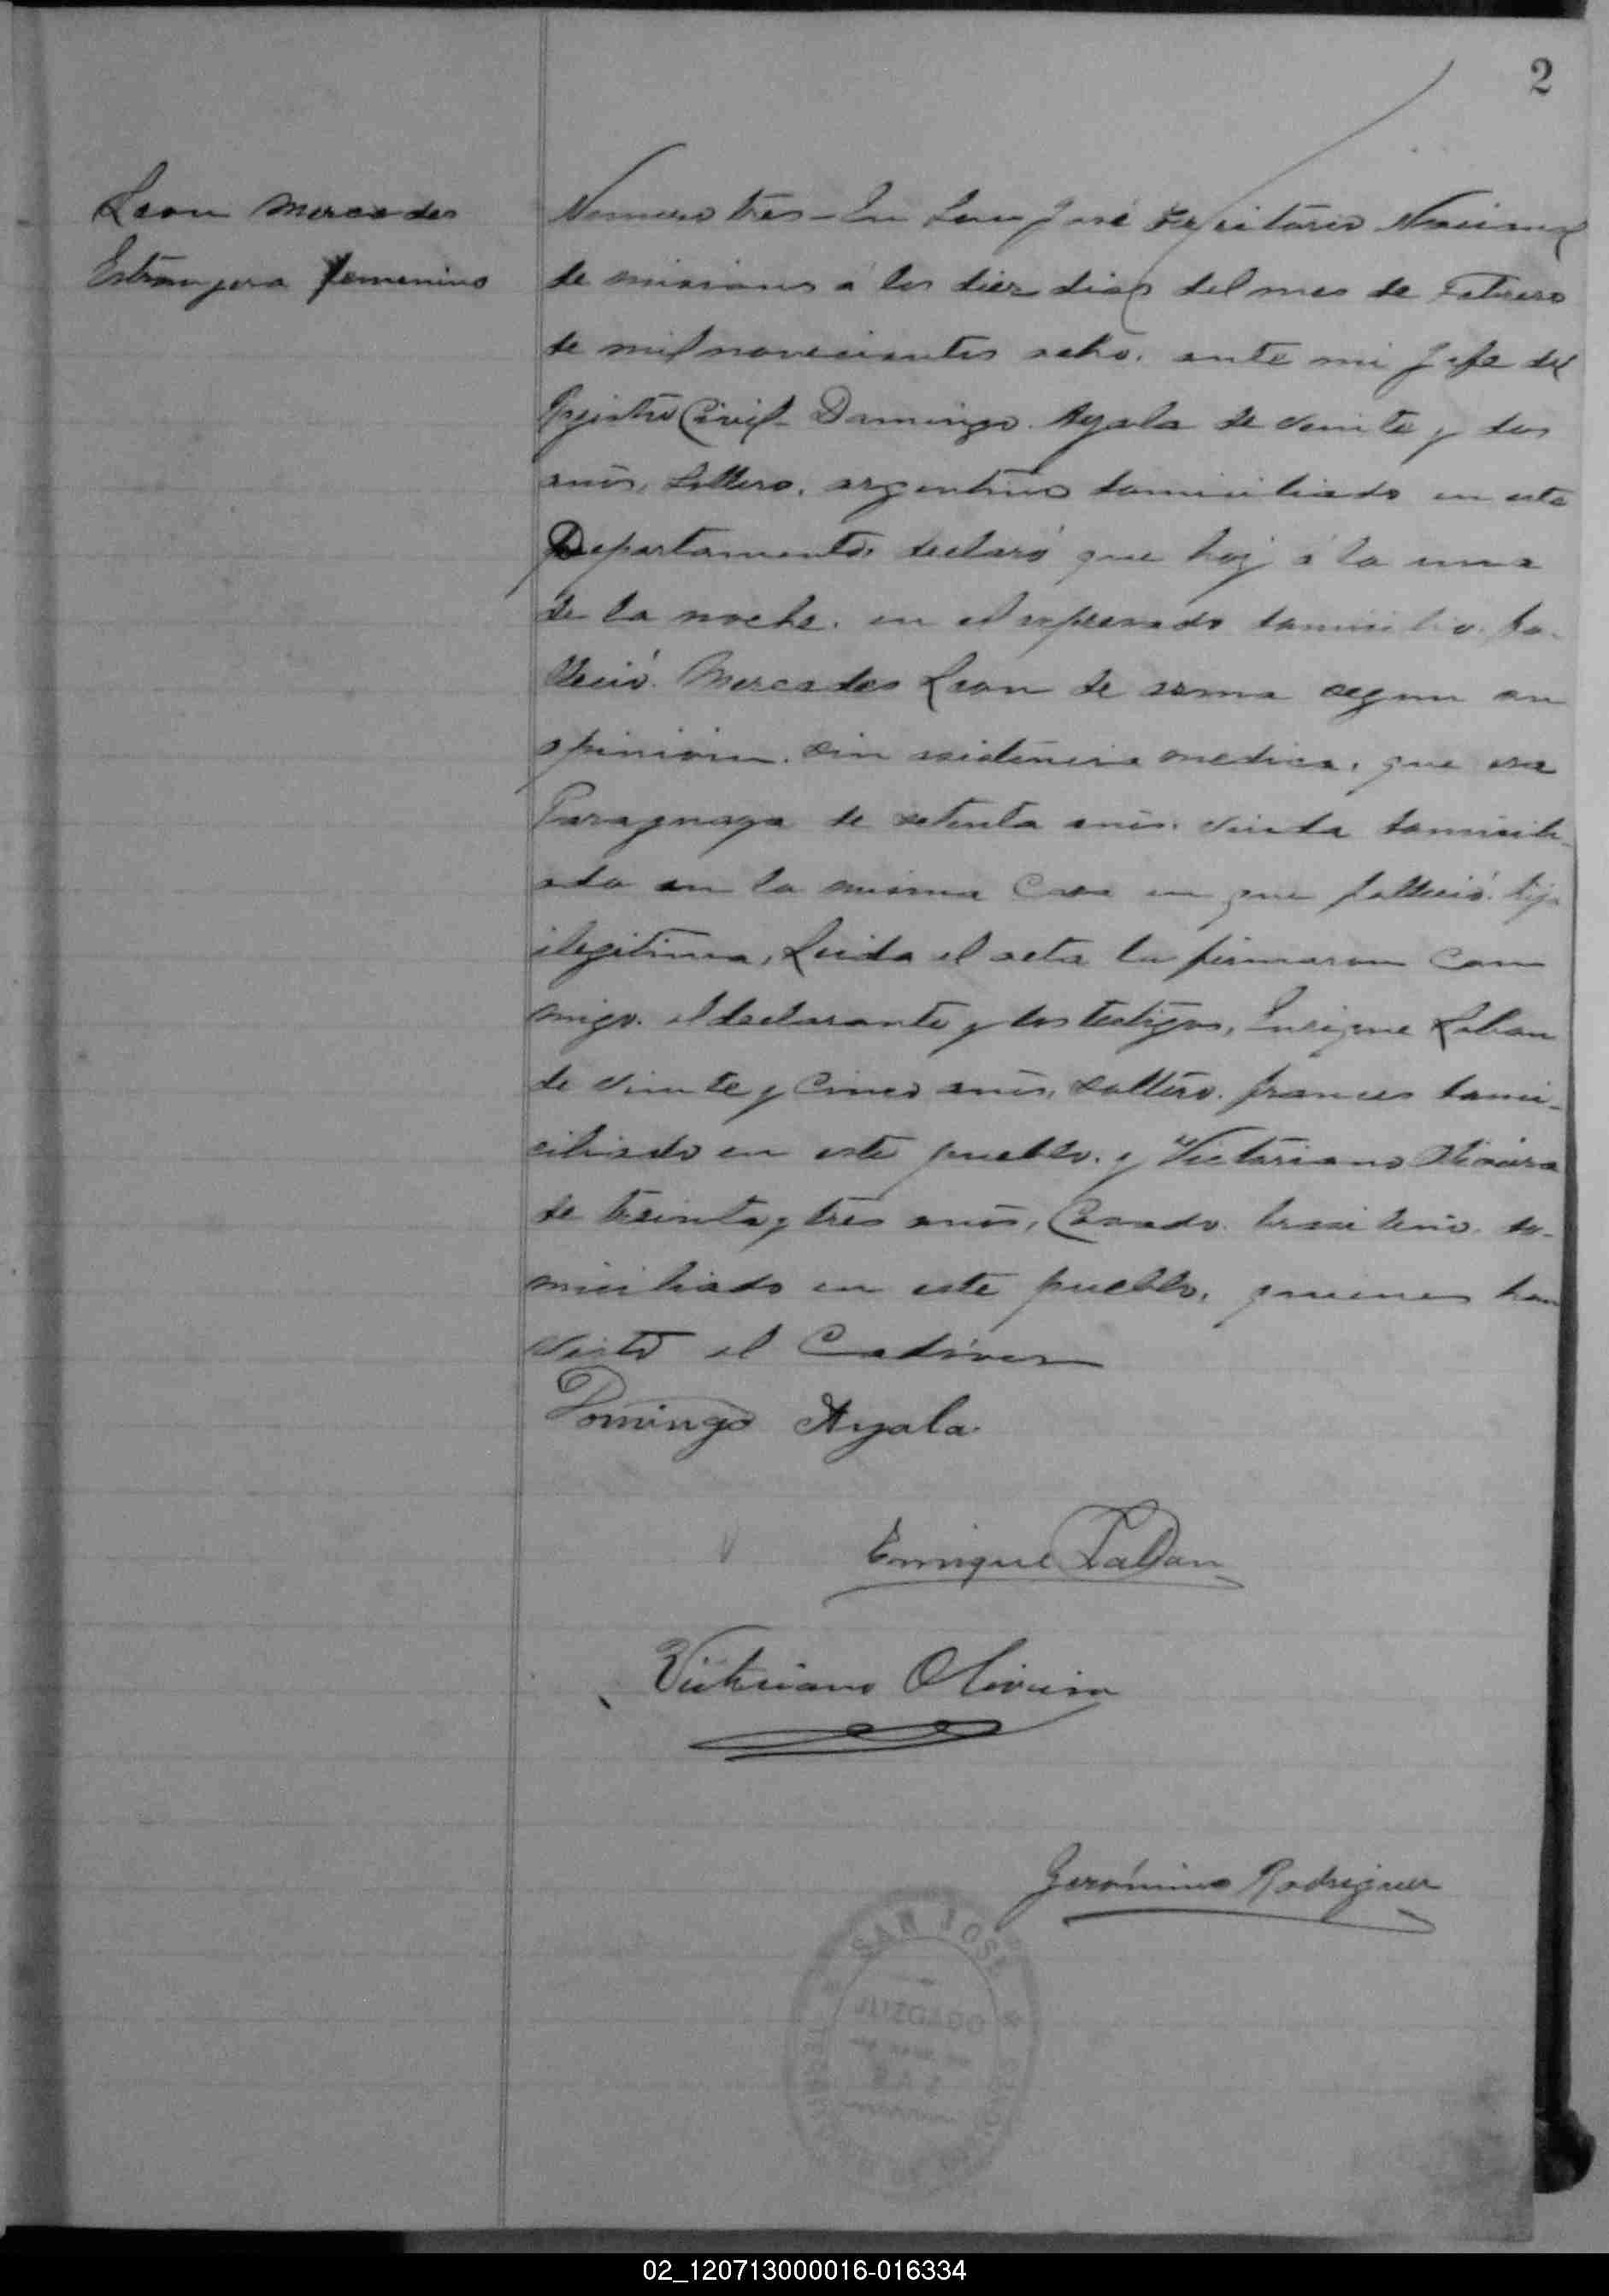 2
Leon Mercedes
Estranjera femenino
Numero tres - En San José Territorio Nacional
de misiones á los diez dias del mes de Febrero
de mil novecientos ocho. ante mi Jefe del
Registro Civil - Domingo Ayala de veinte y dos
años, soltero, argentino domiciliado en este
Departamento, declaró que hoy á la una
de la noche. en el espresado domicilio. fa-
lleció Mercedes Leon de asma segun su
opinion. sin asistencia medica, que era
Paraguaya de setenta años. viuda domicili-
ada en la misma Casa en que falleció. hija
ilegitima, Leida el acta la firmaron con
migo. el declarante y los testigos, Enrique Laban
de veinte y cinco años, soltero. frances domi-
ciliado en este pueblo. y Victoriano Oliveira
de treinta y tres años, Casado. brasileño. do-
miciliado en este pueblo, quienes han
visto el Cadáver
Domingo Ayala.
Enrique Laban
Victoriano Oliveira
Gerónimo Rodriguez
SAN JOSE
02_120713000016-016334